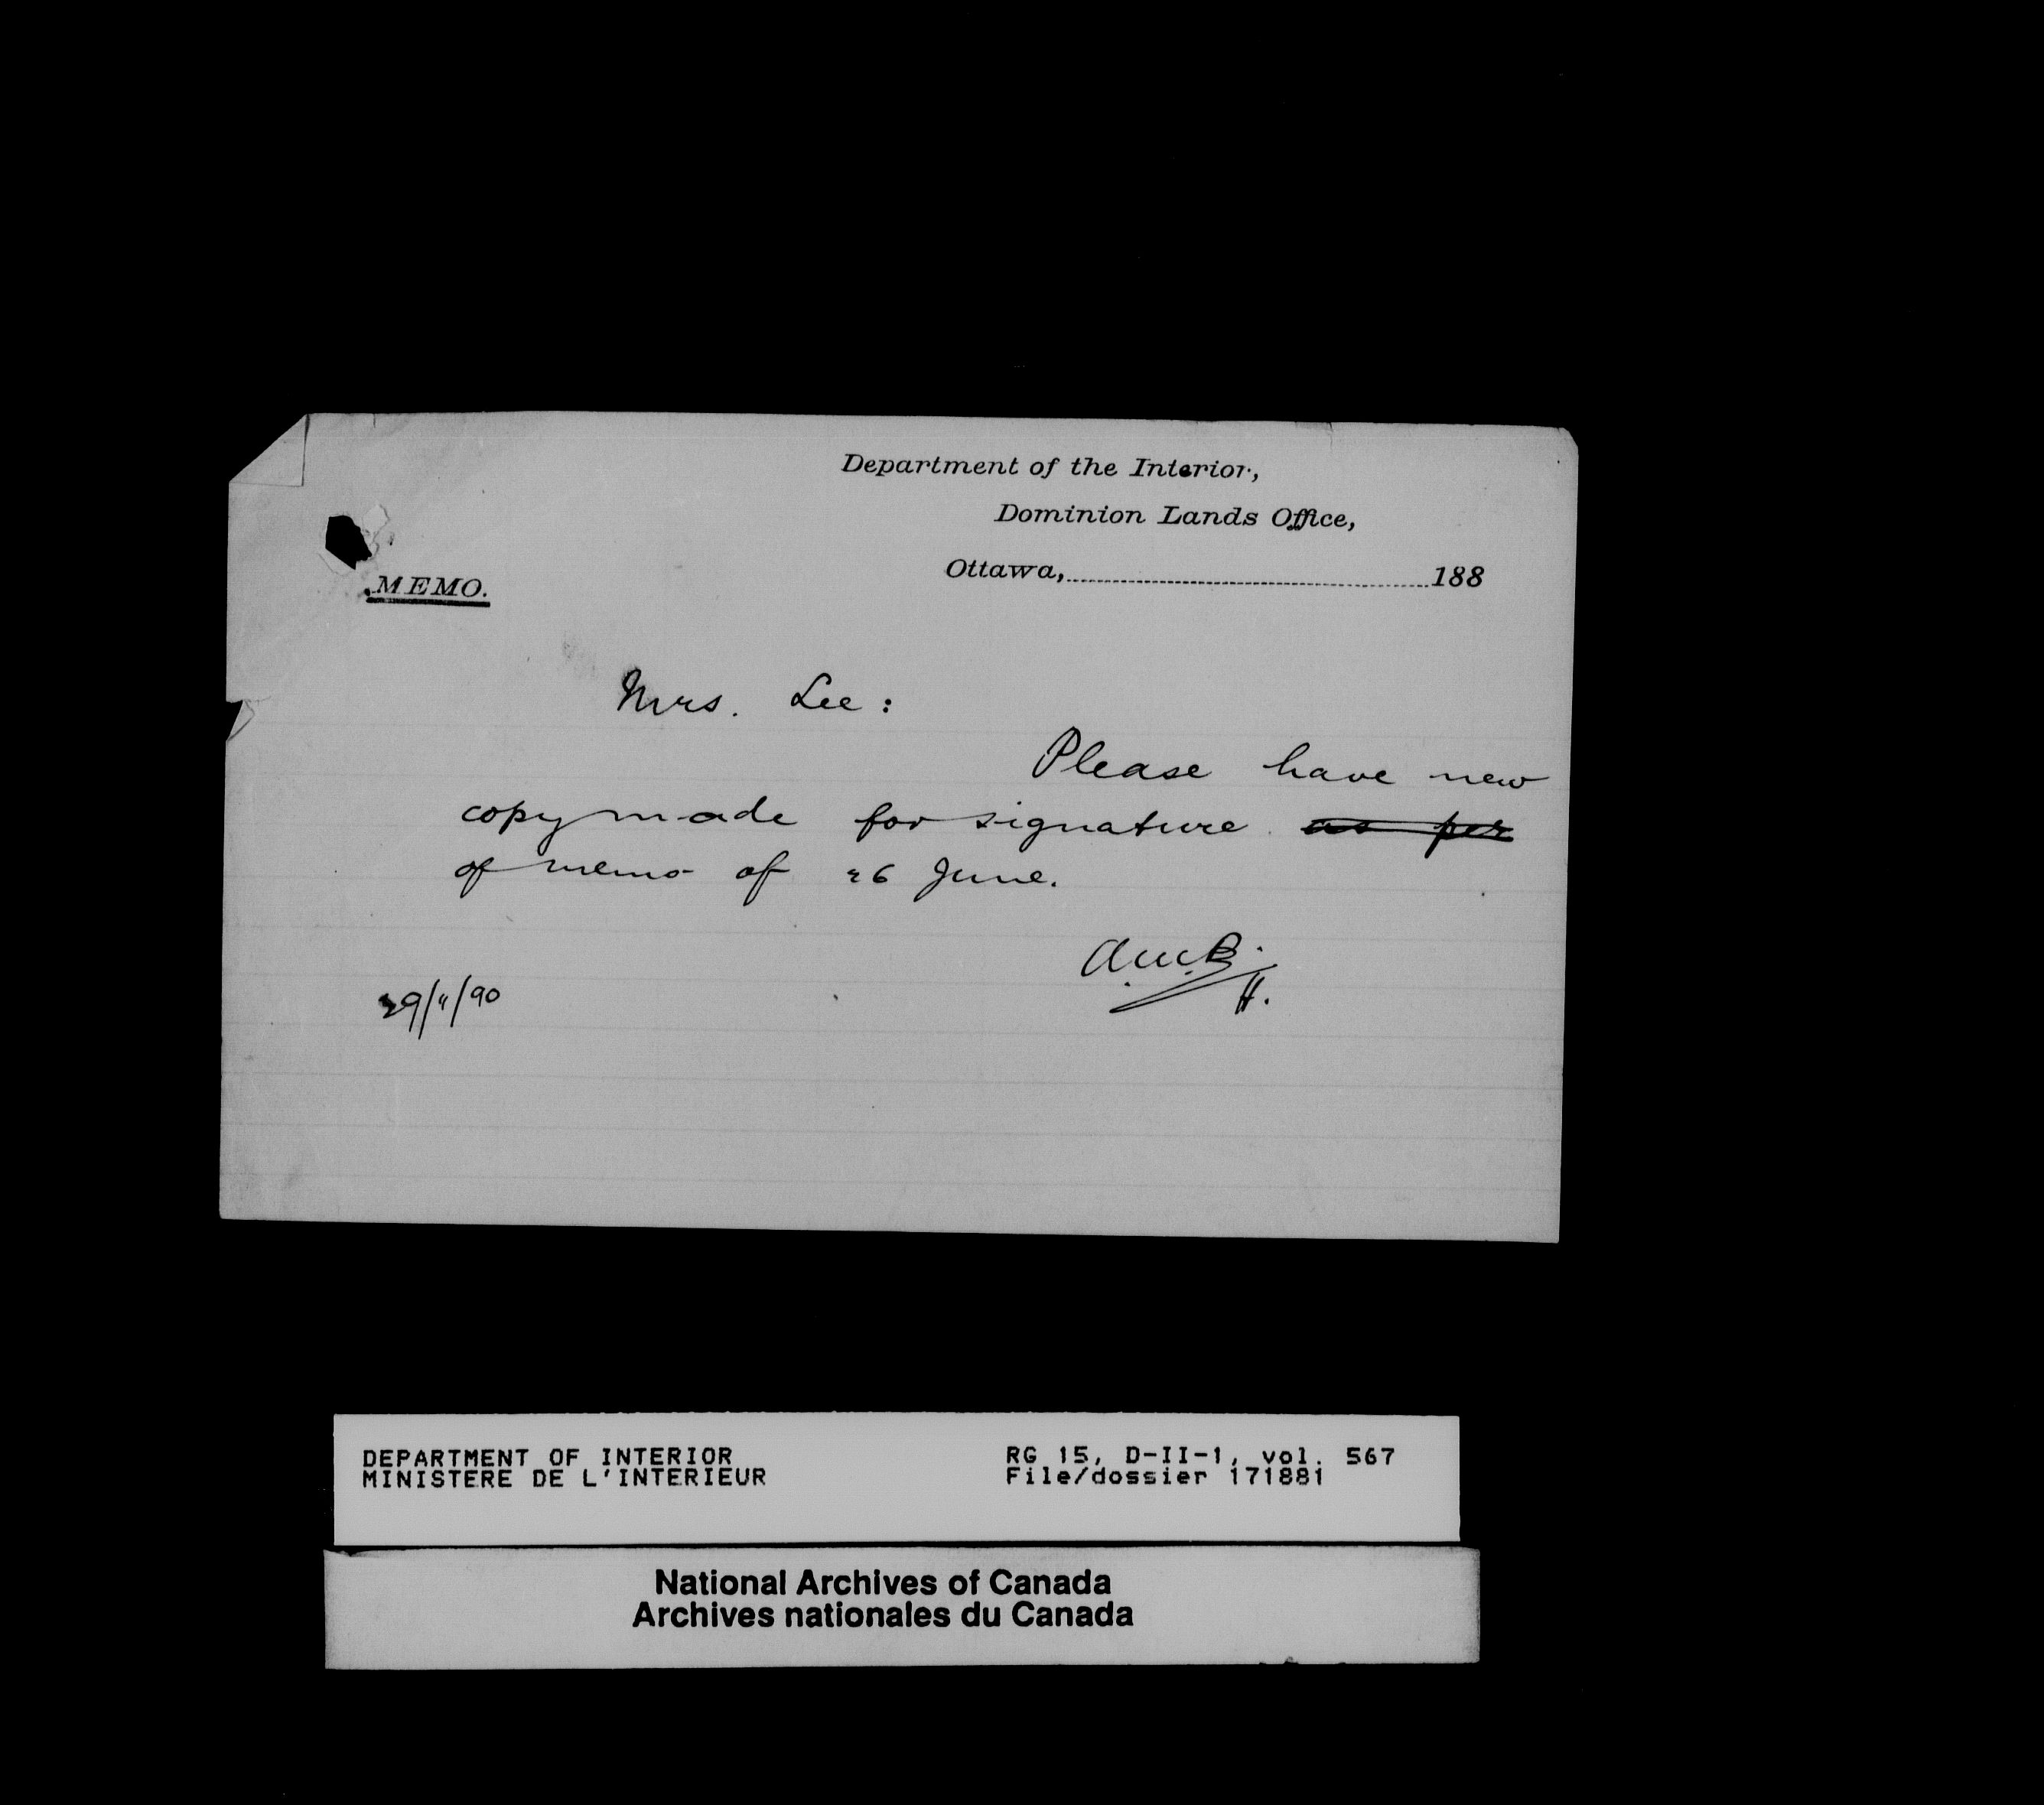 Department of the Interior,
Dominion Lands Office,
Ottawa, 188
MEMO.
Mrs. Lee:
Please have new
copy made for signature as per
of memo of 26 June.
A.M.B.
H.
29/4/90
DEPARTMENT OF INTERIOR
MINISTERE DE L'INTERIEUR
RG 15, D-II-1, vol. 567
File/dossier 171881
National Archives of Canada
Archives nationales du Canada